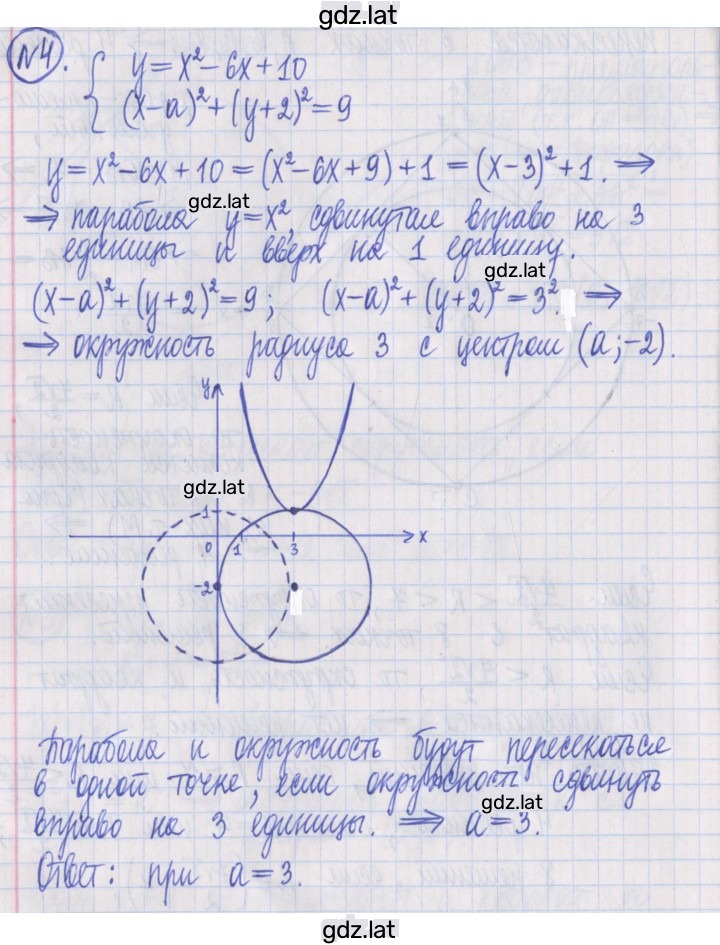 gdz.lat
№4. { y = x² – 6x + 10
(x–a)² + (y+2)² = 9
y = x² – 6x + 10 = (x² – 6x + 9) + 1 = (x–3)² + 1. ⇒
gdz.lat
⇒ парабола y = x², сдвинутая вправо на 3
единицы и вверх на 1 единицу.
gdz.lat
(x–a)² + (y+2)² = 9; (x–a)² + (y+2)² = 3². ⇒
⇒ окружность радиуса 3 с центром (a; –2).
y
gdz.lat
1
0 1 3 x
–2
Парабола и окружность будут пересекаться
в одной точке, если окружность сдвинуть
gdz.lat
вправо на 3 единицы. ⇒ a = 3.
Ответ: при a = 3.
gdz.lat